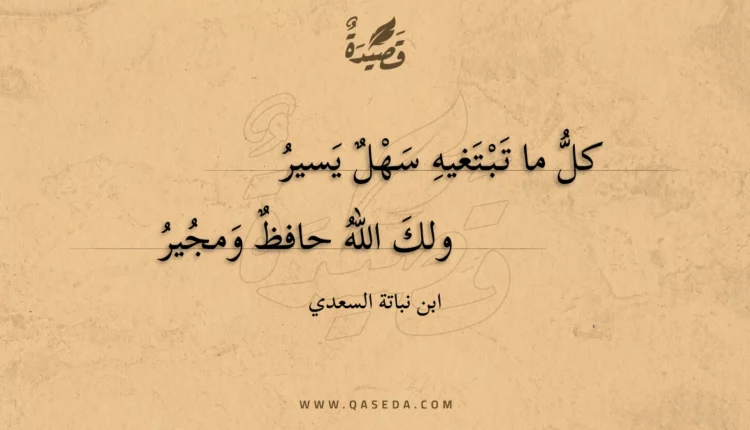 قَصِيدَةٌ
كلُّ ما تَبْتَغيهِ سَهْلٌ يَسيرُ
ولكَ اللهُ حافظٌ وَمجُيرُ
ابن نباتة السعدي
WWW.QASEDA.COM